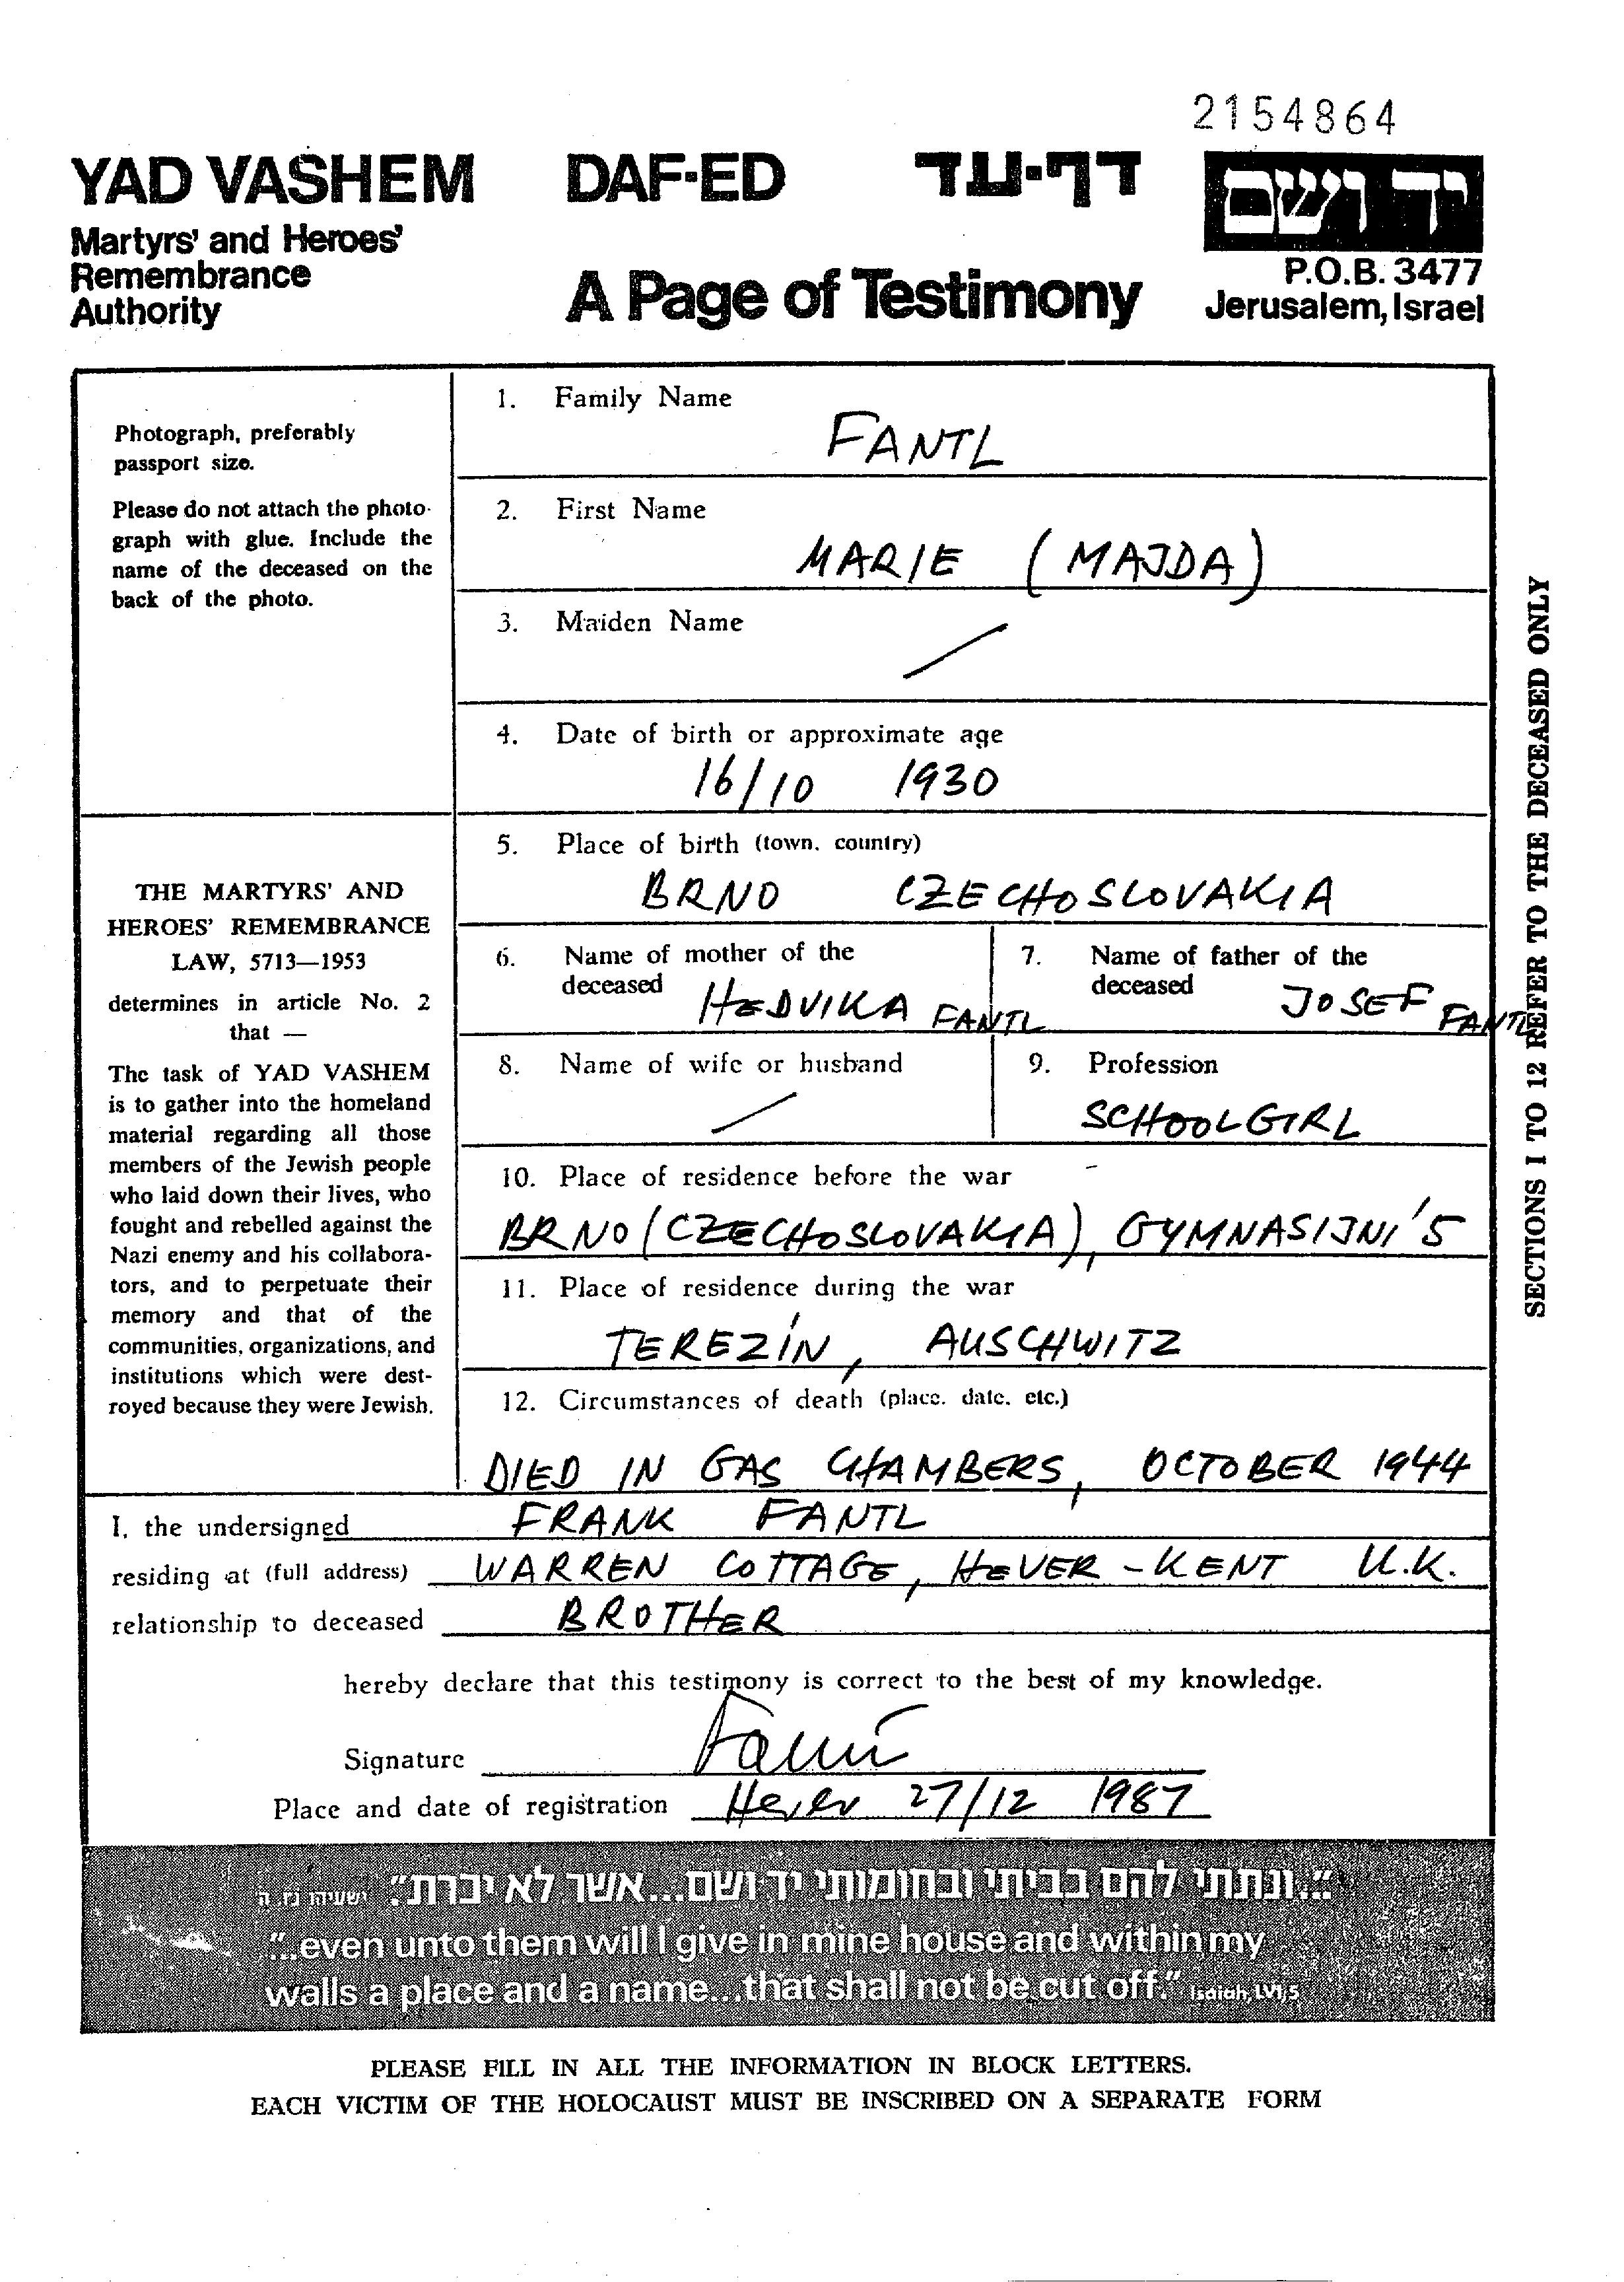 2154864
YAD VASHEM DAF-ED דף-עד ידושם
Martyrs' and Heroes'
Remembrance
Authority
A Page of Testimony
P.O.B. 3477
Jerusalem, Israel
Photograph, preferably
passport size.
Please do not attach the photo-
graph with glue. Include the
name of the deceased on the
back of the photo.
THE MARTYRS' AND
HEROES' REMEMBRANCE
LAW, 5713—1953
determines in article No. 2
that —
The task of YAD VASHEM
is to gather into the homeland
material regarding all those
members of the Jewish people
who laid down their lives, who
fought and rebelled against the
Nazi enemy and his collabora-
tors, and to perpetuate their
memory and that of the
communities, organizations, and
institutions which were dest-
royed because they were Jewish.
1. Family Name
FANTL
2. First Name
MARIE (MAJDA)
3. Maiden Name
/
4. Date of birth or approximate age
16/10 1930
5. Place of birth (town, country)
BRNO CZECHOSLOVAKIA
6. Name of mother of the
deceased HEDVIKA FANTL
7. Name of father of the
deceased JOSEF FANTL
8. Name of wife or husband
/
9. Profession
SCHOOLGIRL
10. Place of residence before the war
BRNO (CZECHOSLOVAKIA), GYMNASIJNI'5
11. Place of residence during the war
TEREZÍN, AUSCHWITZ
12. Circumstances of death (place, date, etc.)
DIED IN GAS CHAMBERS, OCTOBER 1944
I, the undersigned FRANK FANTL
residing at (full address) WARREN COTTAGE, HEVER - KENT U.K.
relationship to deceased BROTHER
hereby declare that this testimony is correct to the best of my knowledge.
Signature
Place and date of registration Hever 27/12 1987
SECTIONS 1 TO 12 REFER TO THE DECEASED ONLY
"...ונתתי להם בביתי ובחומותי יד ושם...אשר לא יכרת". ישעיהו נו, ה
"...even unto them will I give in mine house and within my
walls a place and a name...that shall not be cut off." Isaiah, LVI, 5
PLEASE FILL IN ALL THE INFORMATION IN BLOCK LETTERS.
EACH VICTIM OF THE HOLOCAUST MUST BE INSCRIBED ON A SEPARATE FORM